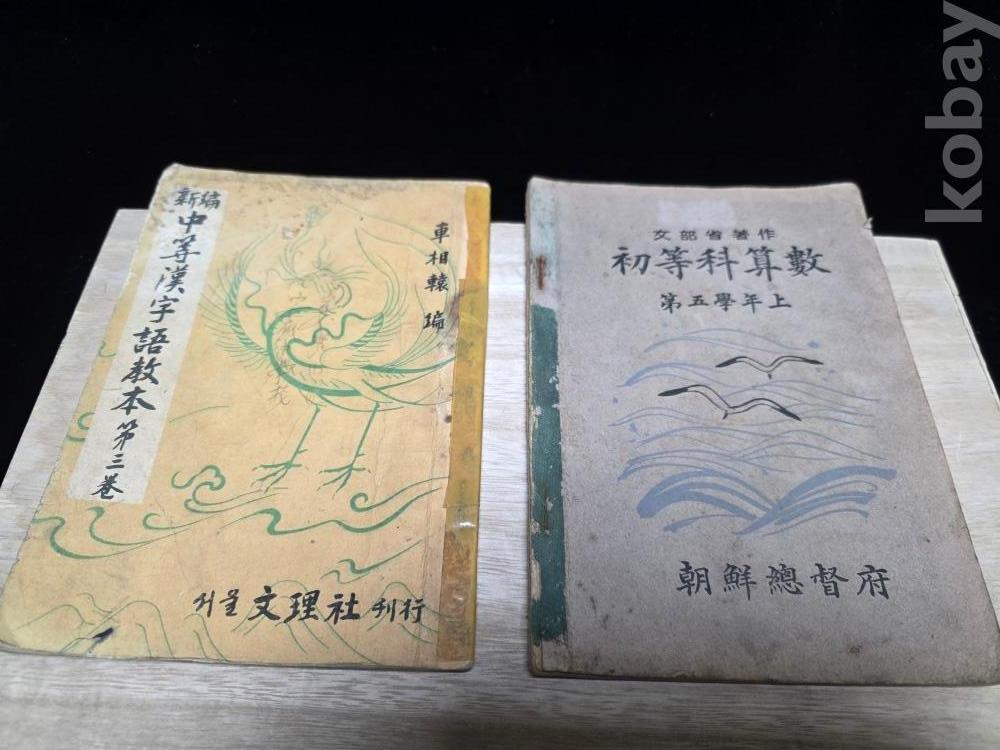 新編
中等漢字語教本 第三卷
車相轅 編
서울 文理社 刊行
文部省著作
初等科算數
第五學年上
朝鮮總督府
kobay